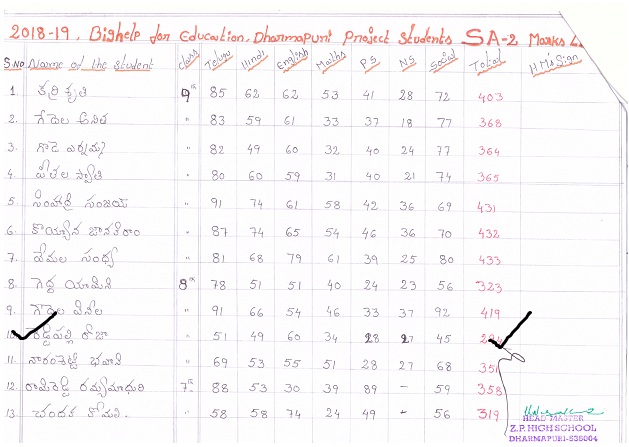 2018-19, Bighelp for Education, Dharmapuri Project Students SA-2 Marks
S.No Name of the Student class Telugu Hindi English Maths P.S N.S Social Total HM's Sign
1. కర్రి కృతి 9th 85 62 62 53 41 28 72 403
2. గేదెల అనిత " 83 59 61 33 37 18 77 368
3. గౌడ " 82 49 60 32 40 24 77 364
4. " 80 60 59 31 40 21 74 365
5. సింహాద్రి సంజయ్ " 91 74 61 58 42 36 69 431
6. కొయ్యాన జానకిరాం " 87 74 65 54 46 36 70 432
7. వేమల సంధ్య " 81 68 79 61 39 25 80 433
8. గెద్ద యామిని 8th 78 51 51 40 24 23 56 323
9. గౌడెల వెన్నెల " 91 66 54 46 33 37 92 419
10. రెడ్డిపల్లి రోజా " 51 49 60 34 28 27 45
11. నారంశెట్టి భవాని " 69 53 55 51 28 27 68 351
12. రామిరెడ్డి రమ్యమాధురి 7th 88 53 30 39 89 - 59 358
13. చందక 58 58 74 24 49 - 56 319
HEAD MASTER
Z.P. HIGH SCHOOL
DHARMAPURI-535004